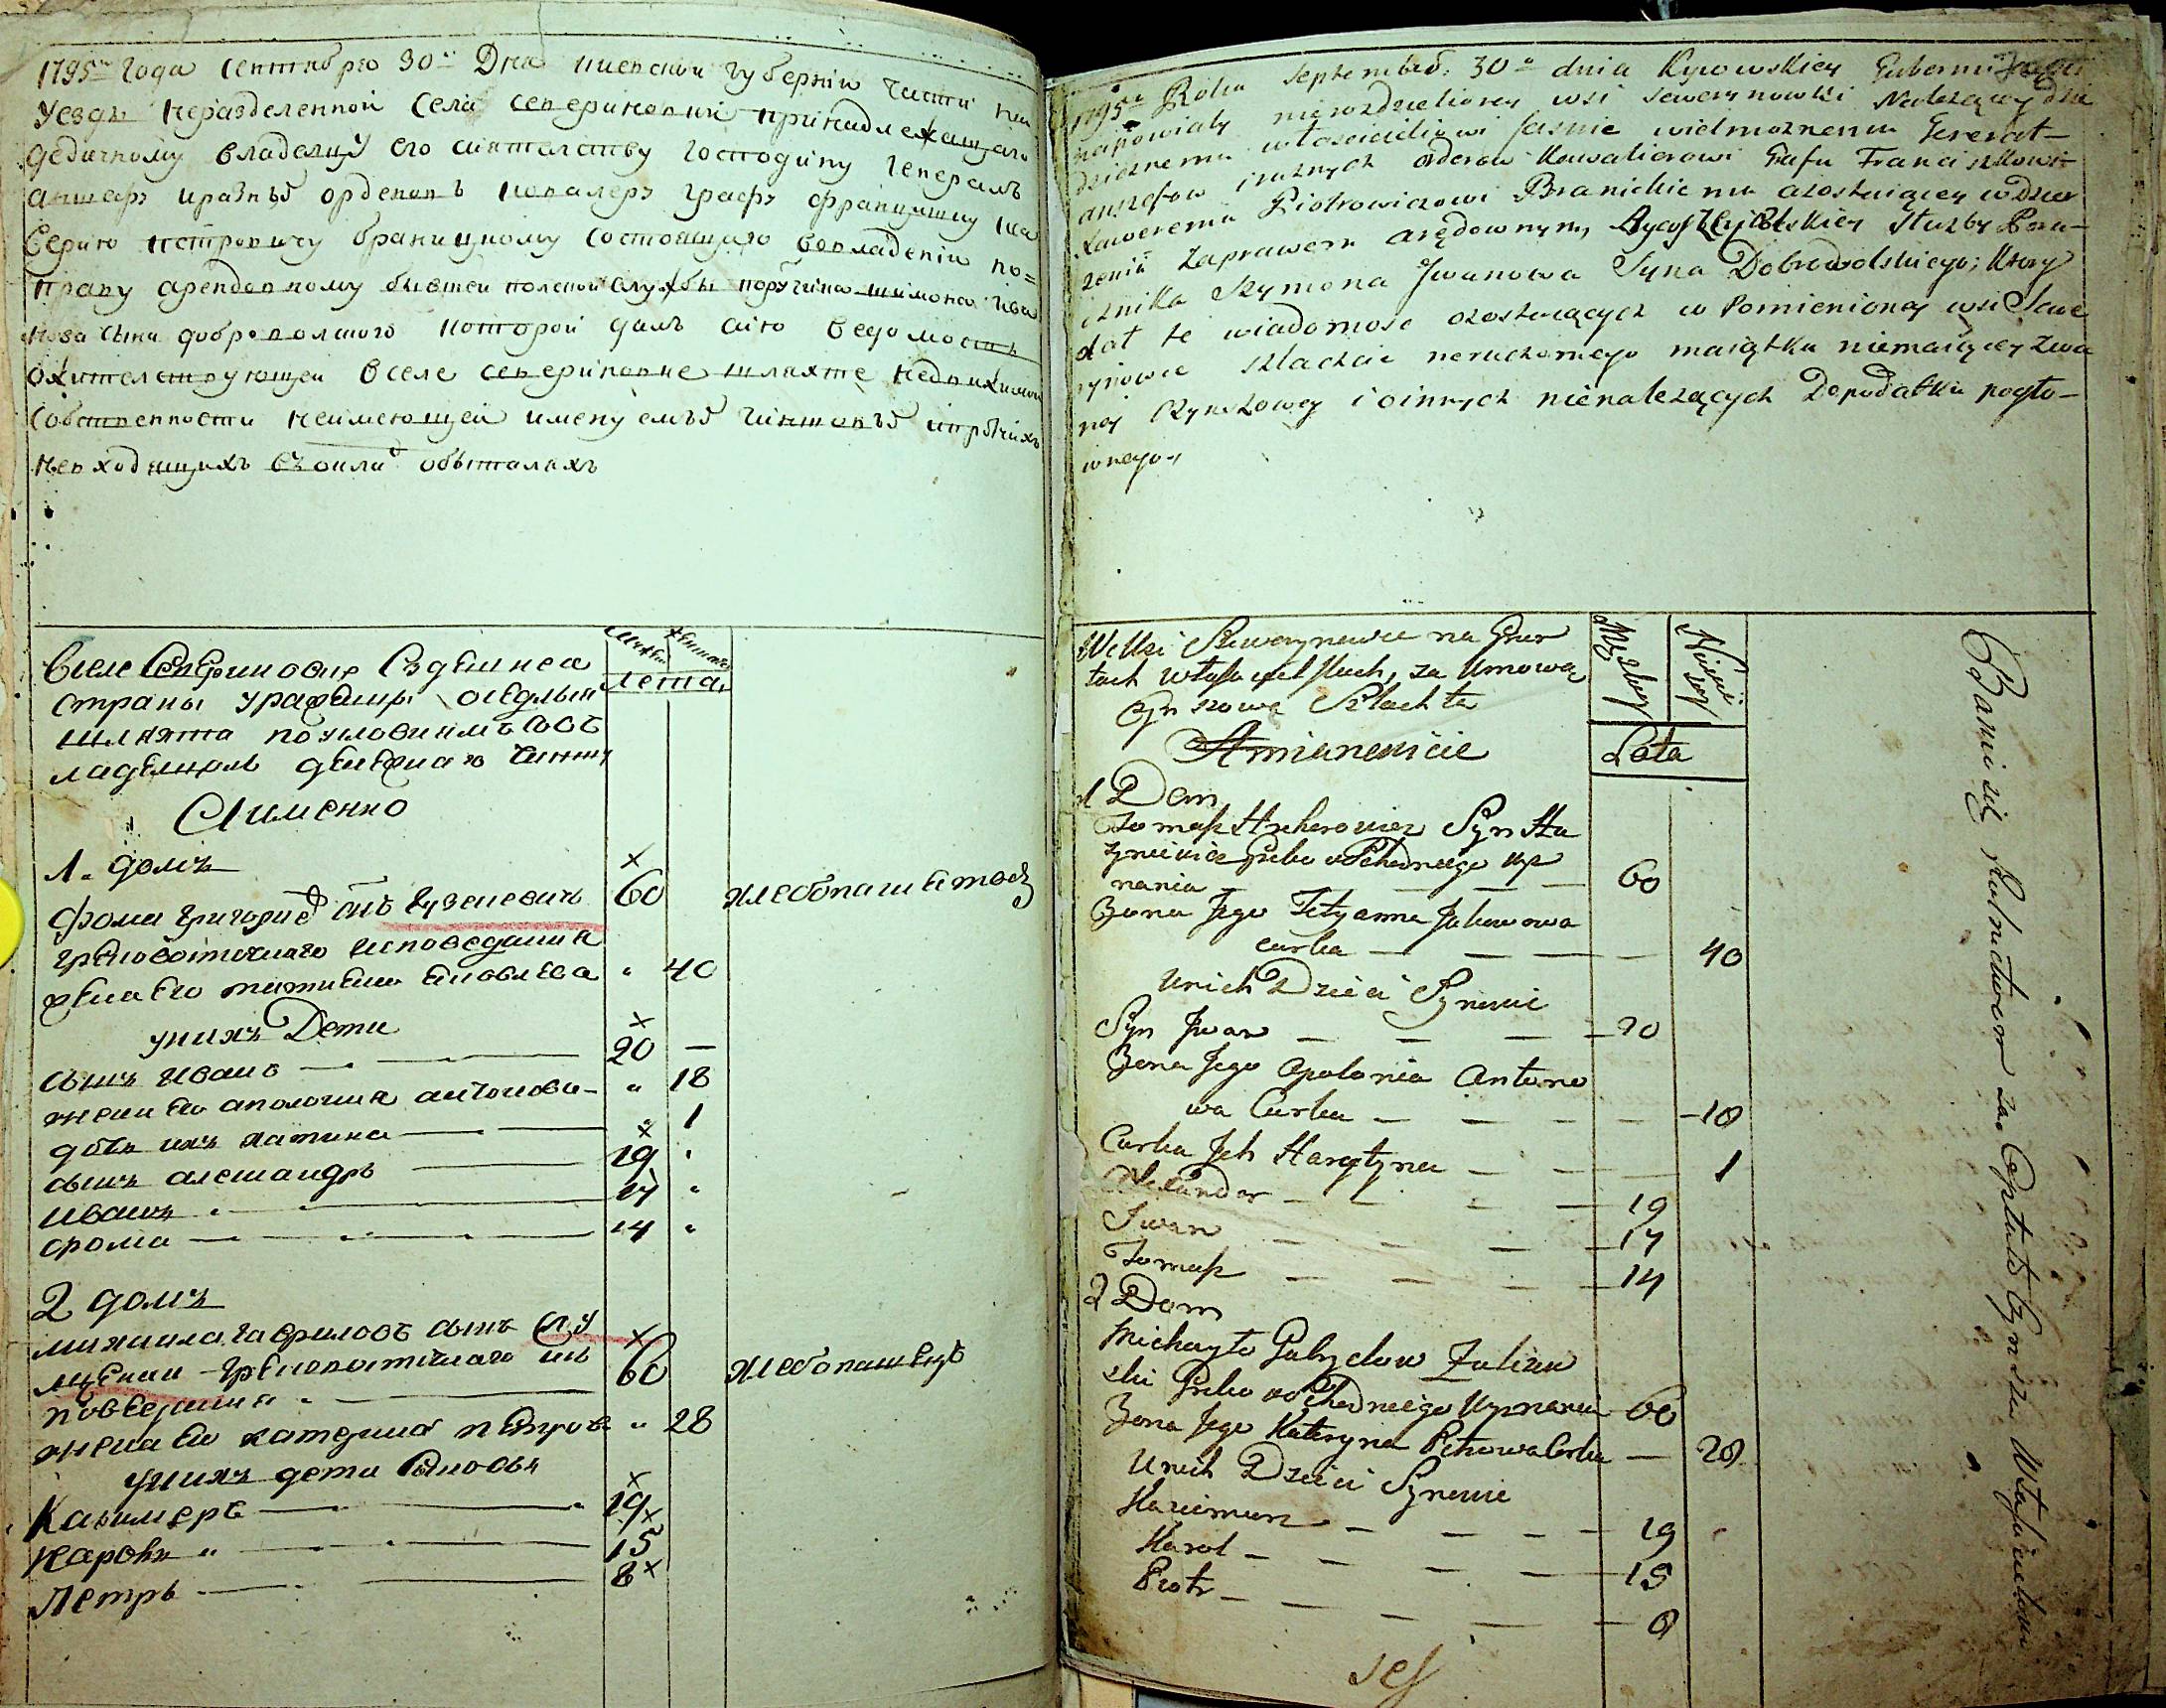 1795го года Сентября 30го Дня Киевской губернии части на
уезды неразделенной села Севериновки принадлежащаго
дедичному владелцу его сиятелству господину Генералъ
аншефу и разнъıхъ орденовъ кавалеру графу францишку ка
верию петровичу браницкому состоящаго вовладении по=
праву арендовному бывшей полской службы поручика шимона ива
нова сына доброволского которой далъ сию ведомость
ожителствующей вселе севериновке шляхте недвижимой
собственности неимеющей именуемъıхъ чиншовъıхъ ипрочихъ
невходящихъ въ окладъ обывателяхъ
Вселе Севериновке Здешнея
страны уроженцы оседлая
шляхта поусловиямъ совъ
ладелцомъ денежнаго чинжу
Аименно
мужеска
женска
Лета
1. домъ
фома григориевъ сынъ
грековосточнаго исповедания
60
хлебопашетвой
жена Его татияна Яковлева
" 40
унихъ Дети
сынъ Иванъ
20 —
жена Его аполония антонова
" 18
дочь ихъ катина
" 1
сынъ александръ
19 "
иванъ
17 "
фома
14 "
2 домъ
михаила гавриловъ сынъ
грековосточнаго ис
поведания
60
хлебопашецъ
жена Его катерина петрова
" 28
унихъ дети Сыновья
Казимеръ
19
Кароль
15
Петръ
8
1795go Roku Septembra 30o dnia Kijowskiey Gubernii
napowiaty nierozdzieloney wsi Sewerynowki Należącey dzie
dzicznemu właścicielowi Jaśnie wielmożnemu Generał
anszefow i rożnych orderow Kawalierowi Grafu Franciszkowi
Xaweremu Piotrowiczowi Branickiemu a zostaiącey w dzier
żeniu zaprawem arędownym, Polskiey służby Poru-
cznika Szymona Iwanowa Syna Dobrowolskiego; Ktory
dał te wiadomosc ozostaiących w Pomienioney wsi Sewe
rynowce szlachcie neruchomego maiątku niemaiącey zwa
ney Czynszowey i oinnych nienależących Depodatku pogło-
wnego
We Wsi Sewerynowce na Grun
tach za Umową
Czynszowa Szlachta
A mianowicie
Męzkiey
Niewie
skiey
Lata
1 Dom
Tomasz Syn
Greko wschodniego wyz
nania
60
Żona Jego Tetyanna Jakowowa
curka
40
Unich Dzieci Synowie
Syn Iwan
20
Żona Jego Apolonia Antono
wa Curka
18
Curka Jch Katyna
1
Alexander
19
Iwan
17
Tomasz
14
2 Dom
Michayło
Greko wschodniego wyznania
60
Żona Jego Kateryna Petrowa Curka
28
Unich Dzieci Synowie
Kazimierz
19
Karol
15
Piotr
8
Bawi się Rolnictwem za Opłatą Czynszu Właścicielowi